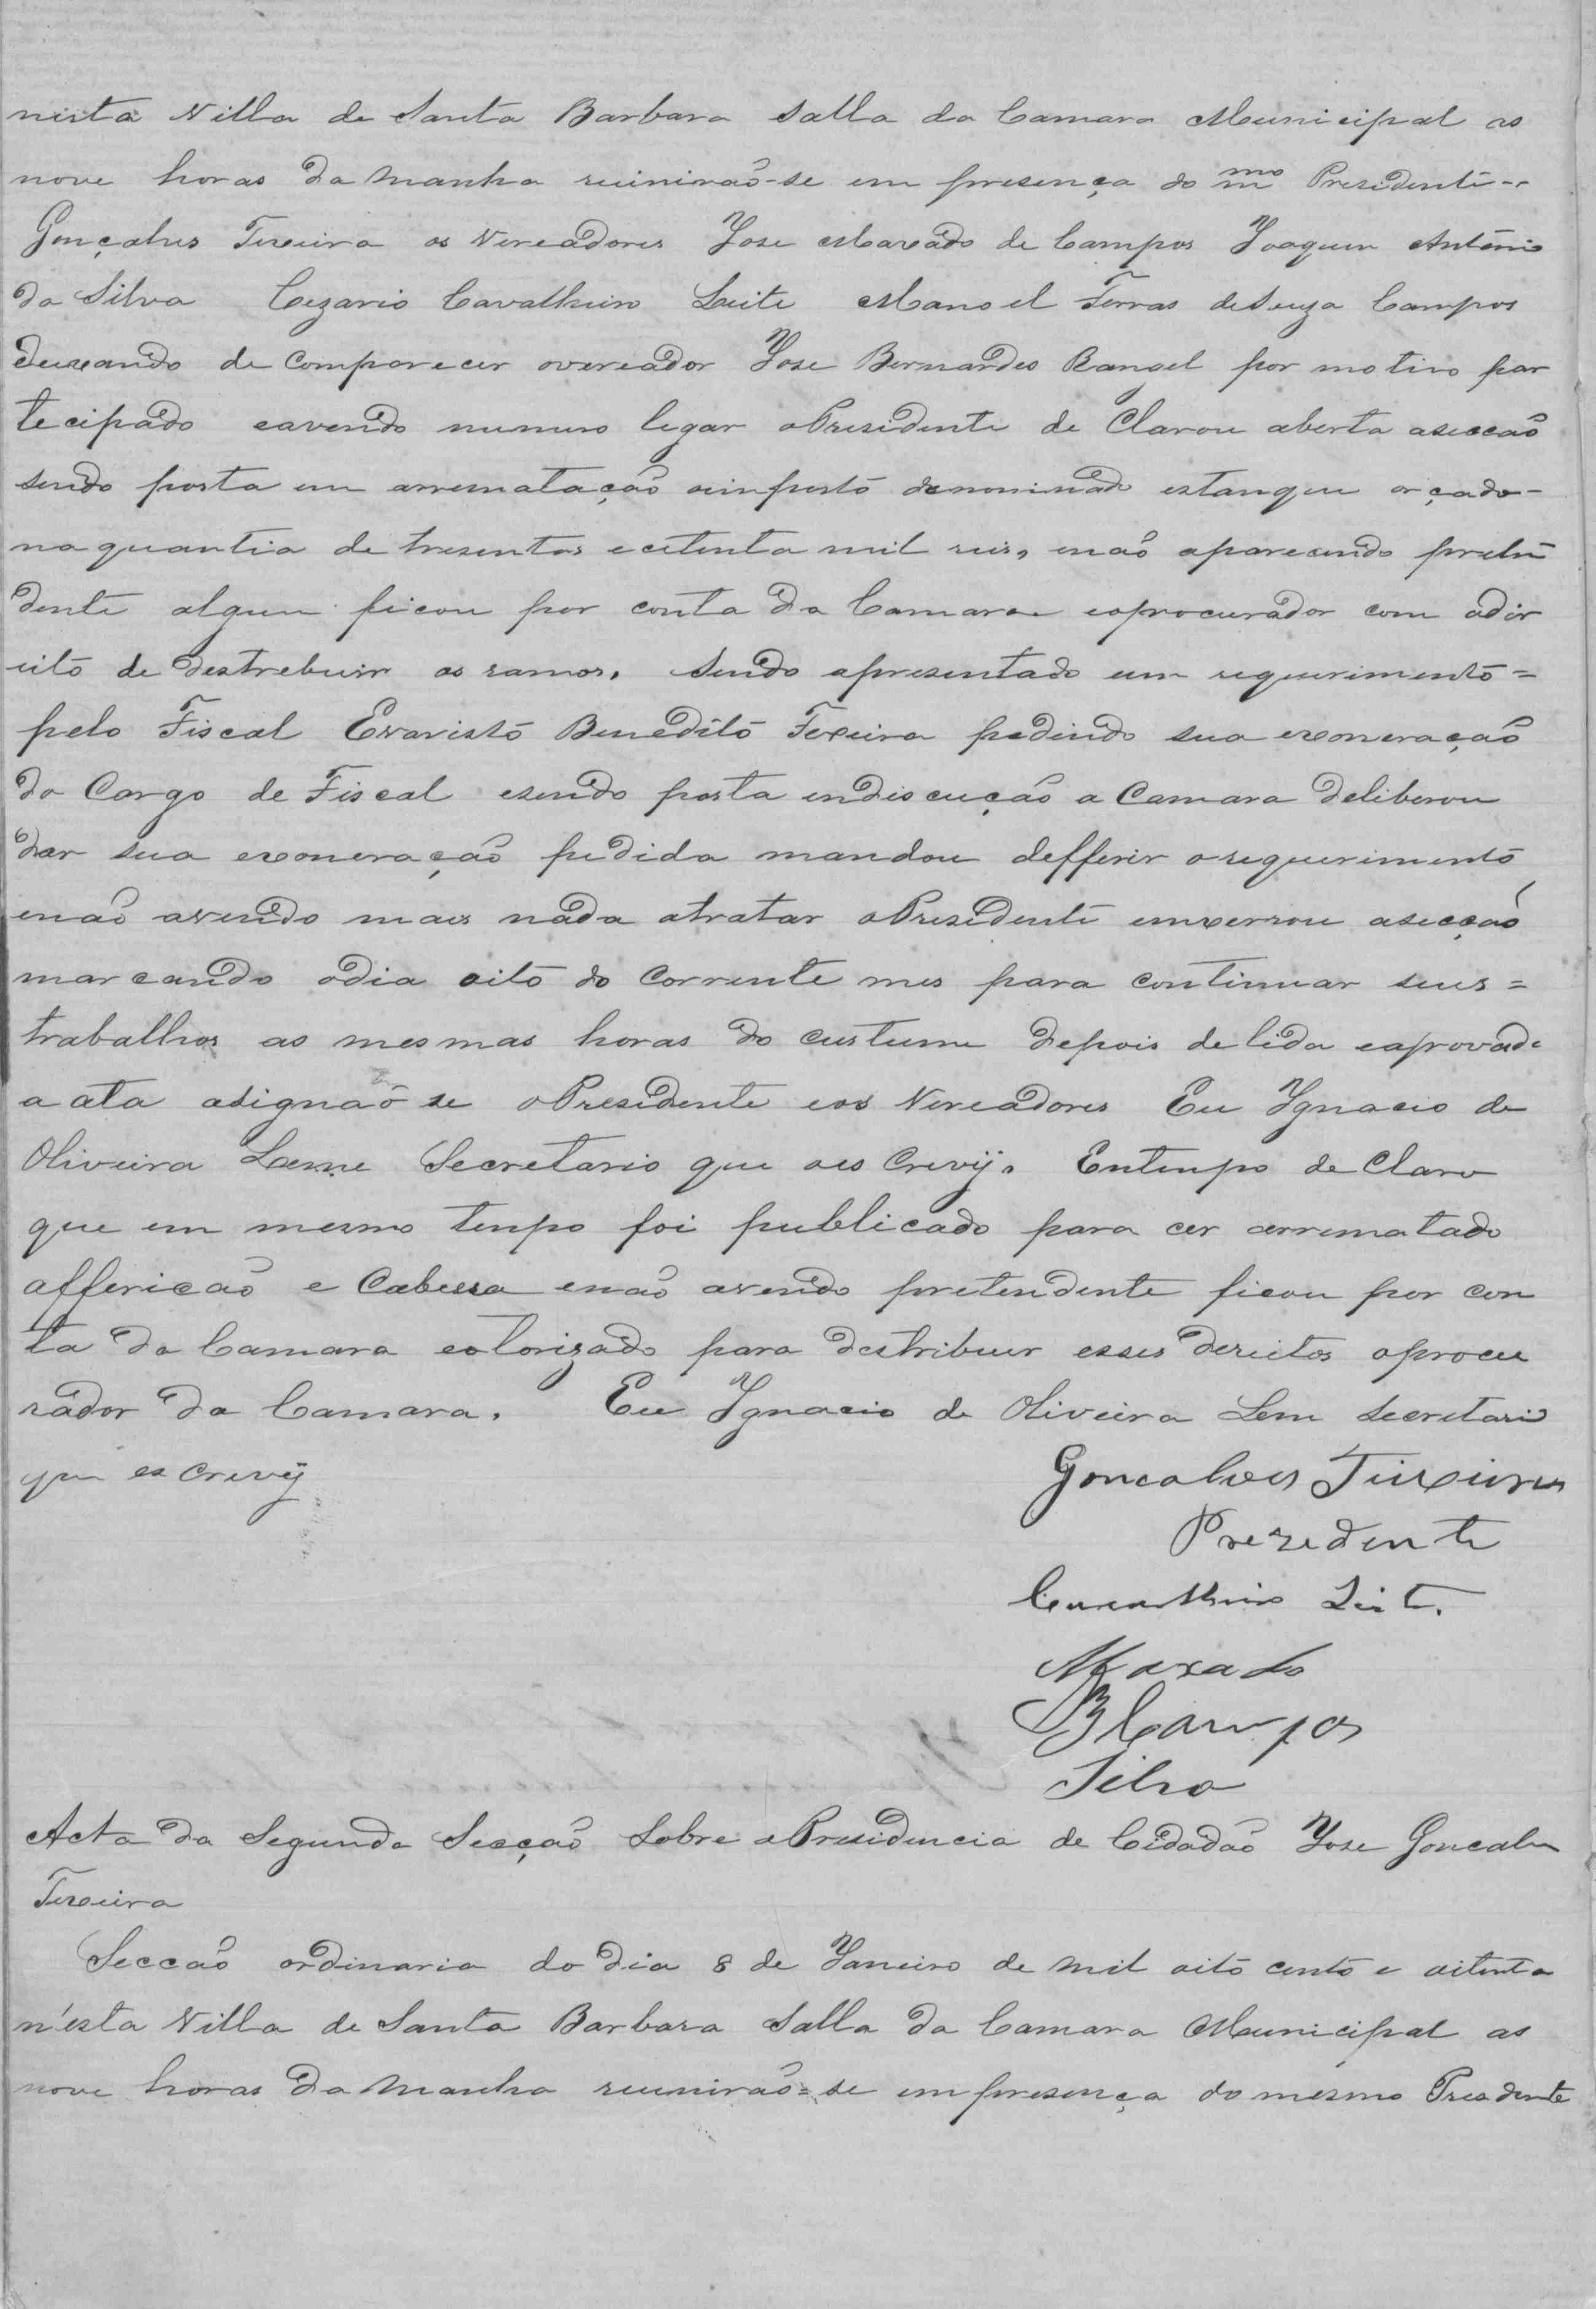 nesta Villa de Santa Barbara Salla da Camara Municipal as
nove horas da manha reunirão-se em presença do mmo Presidente--
Gonçalves Texeira os Vereadores Jose Maxado de Campos Joaquim Antonio
da Silva Cezario Cavalheiro Leite Manoel Ferras de Souza Campos
deixando de comparecer overeador Jose Bernardes Rangel por motivo par
tecipado eavendo numero legar oPresidente de Clarou aberta asecção
sendo posta em arrematação oimposto denominado estanque orçado-
na quantia de tresentos e cetenta mil reis, enão aparecendo preten
dente algum ficou por conta da Camara eoprocurador com odir
eito de destrebuir os ramos. Sendo apresentado um requerimento=
pelo Fiscal Evaristo Benedito Texeira pedindo sua exoneração
do Cargo de Fiscal esendo posta endiscução a Camara deliberou
dar sua exoneração pedida mandou defferir orequerimento
enão avendo mais nada atratar oPresidente enxerrou asecção
marcando odia oito do corrente mes para continuar seus=
traballhos as mesmas horas do custume depois de lida eaprovada
a ata asignão se oPresidente eos Vereadores Eu Ignacio de
Oliveira Leme Secretario que oes Crevij. Entenpo de Claro
que em mesmo tenpo foi publicado para cer arrematado
afferição e Cabessa enão avendo pretendente ficou por con
ta da Camara eotorizado para destribuir esses dereitos oprocu
rador da Camara. Eu Ignacio de Oliveira Leme Secretario
que es Crevij
Goncalves Teixeira
Prezedente
Cavalheiro Leite
Maxado
Campos
Silva
Acta da Segunda Secção Sobre aPresidencia de Cidadão Jose Goncalves
Texeira
Secção ordinaria do dia 8 de Janeiro de mil oito cento e oitenta
n'esta Villa de Santa Barbara Salla da Camara Municipal as
nove horas da manha reunirão=se em presença do mesmo Presidente